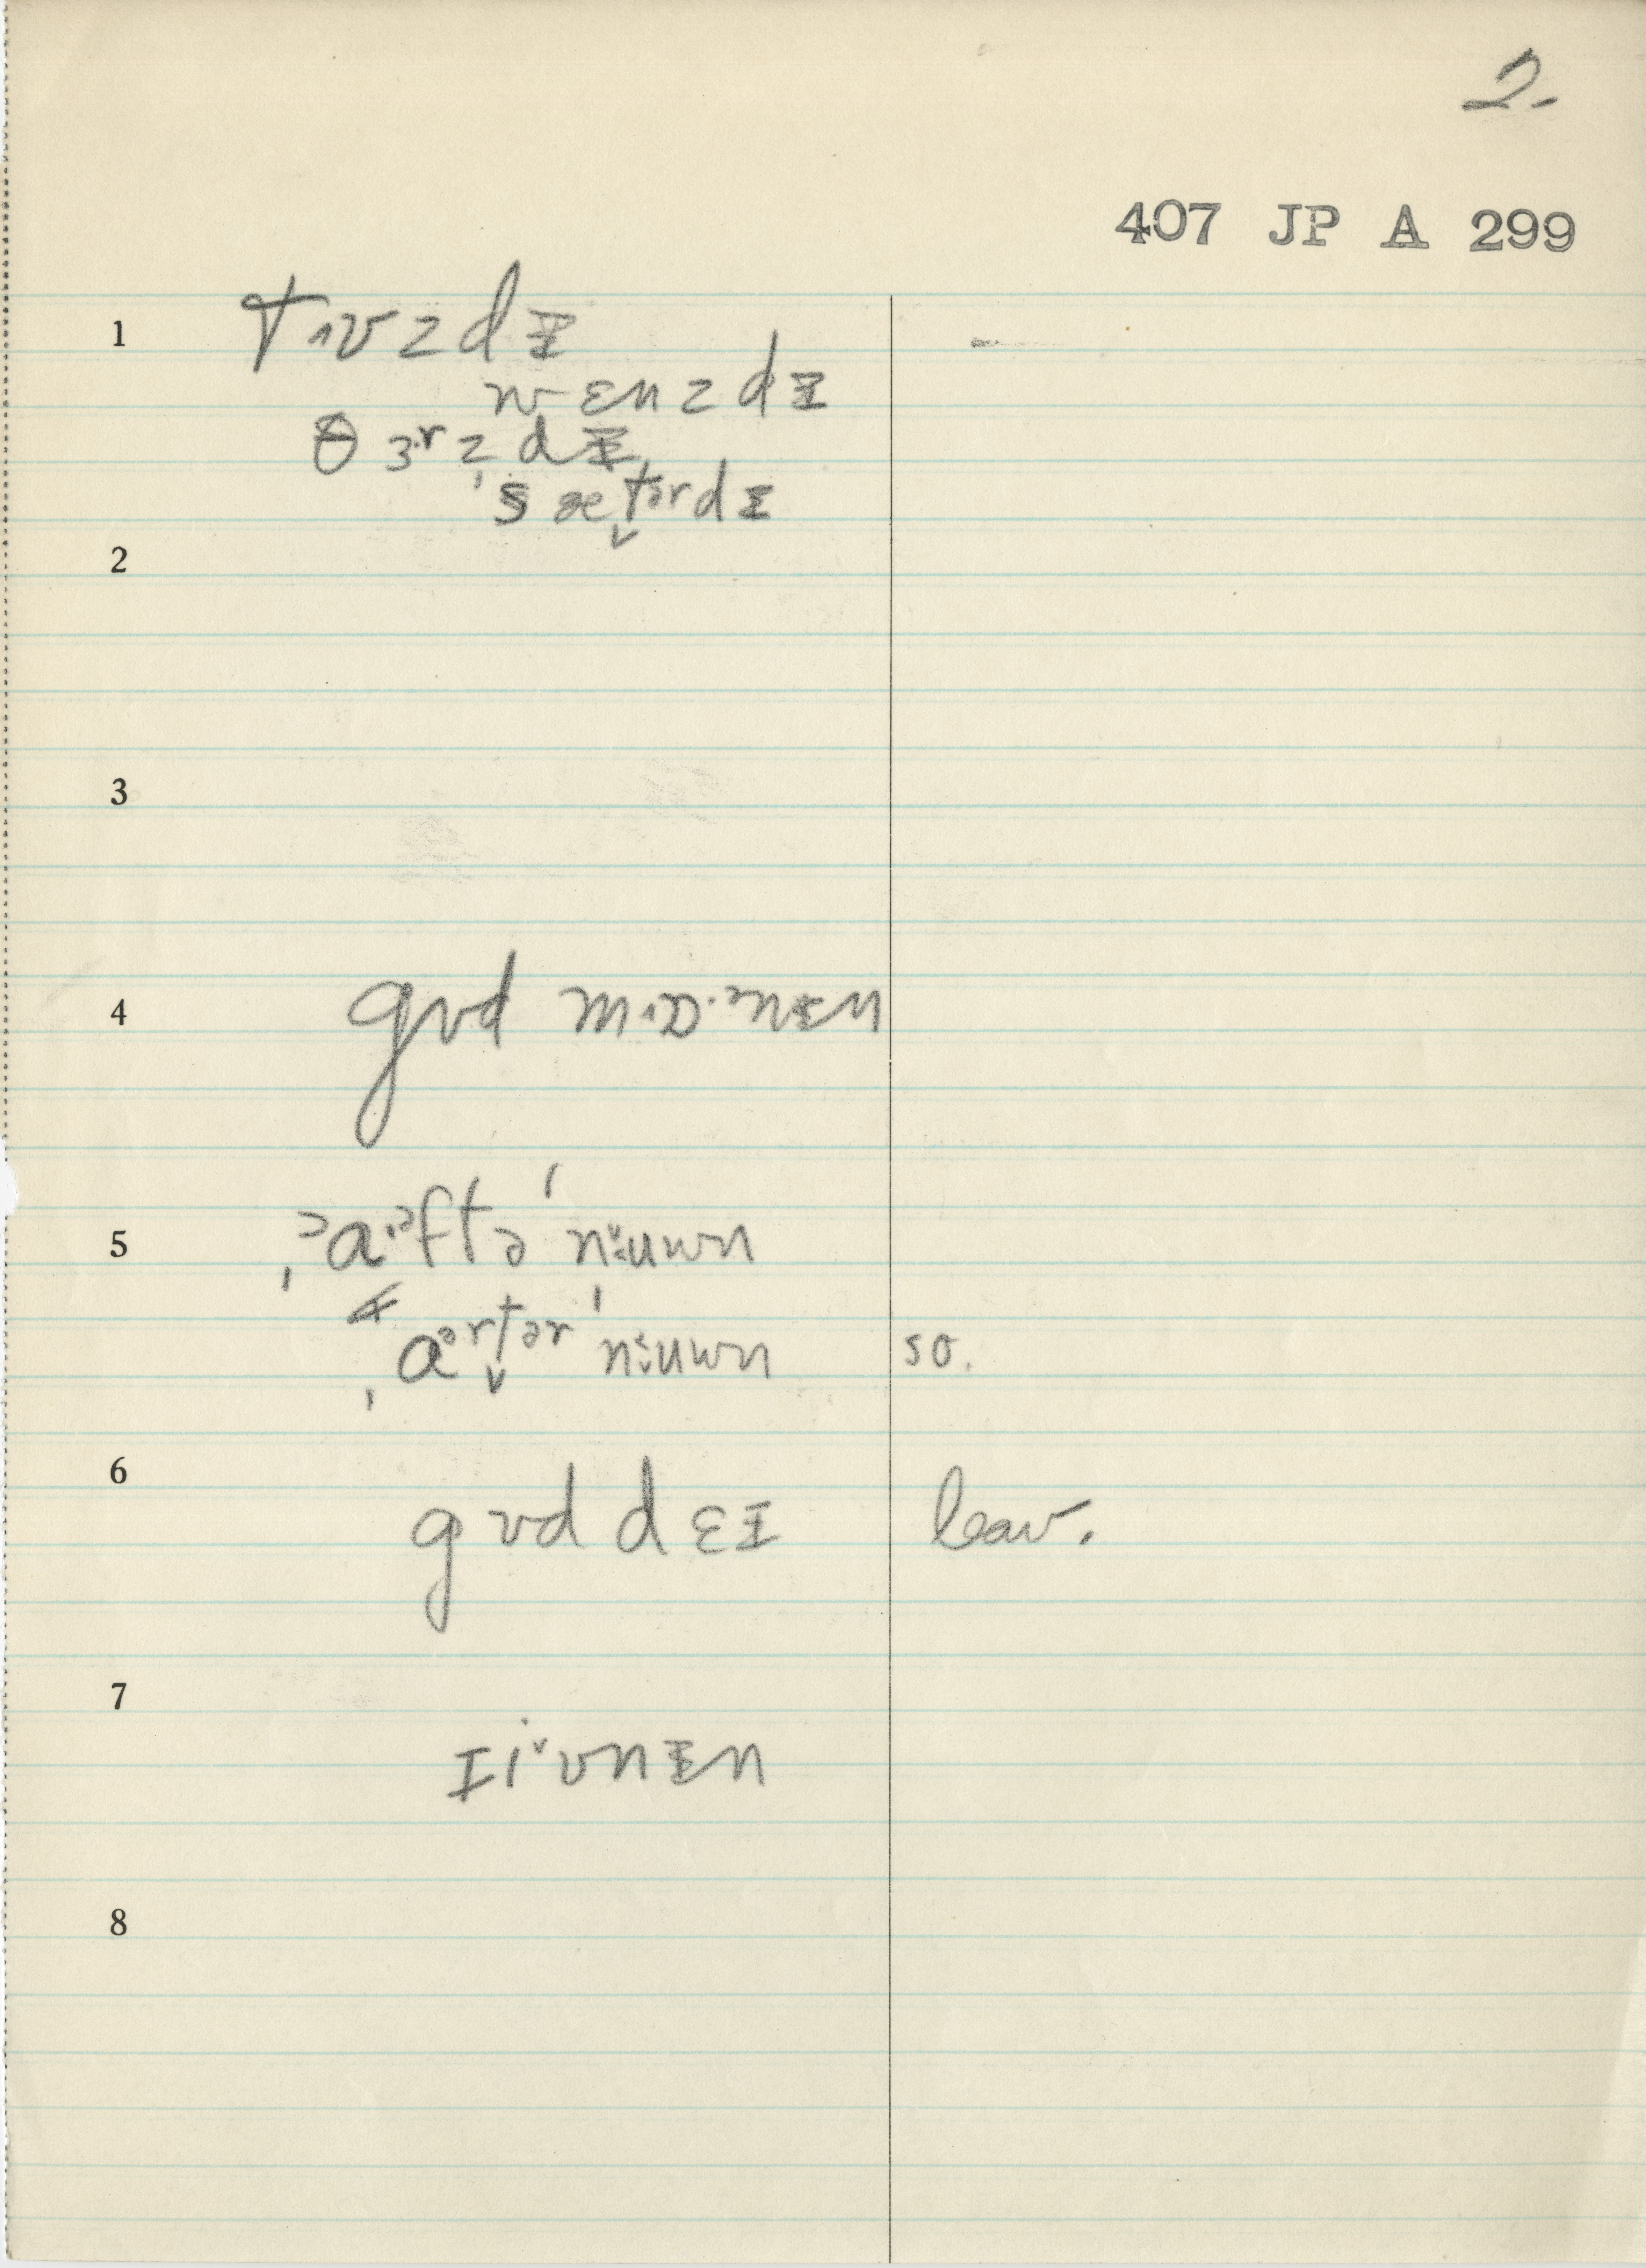 2.
407 JP A 299
1
tʌʊzdɪ
wɛnzdɪ
θɜrzdɪ
sætərdɪ
2
3
4
gʊd mɒənɪn
5
ɑəftə nuwn
ɑərtər nuwn so.
6
gʊd dɛɪ leav.
7
ɪivnɪn
8